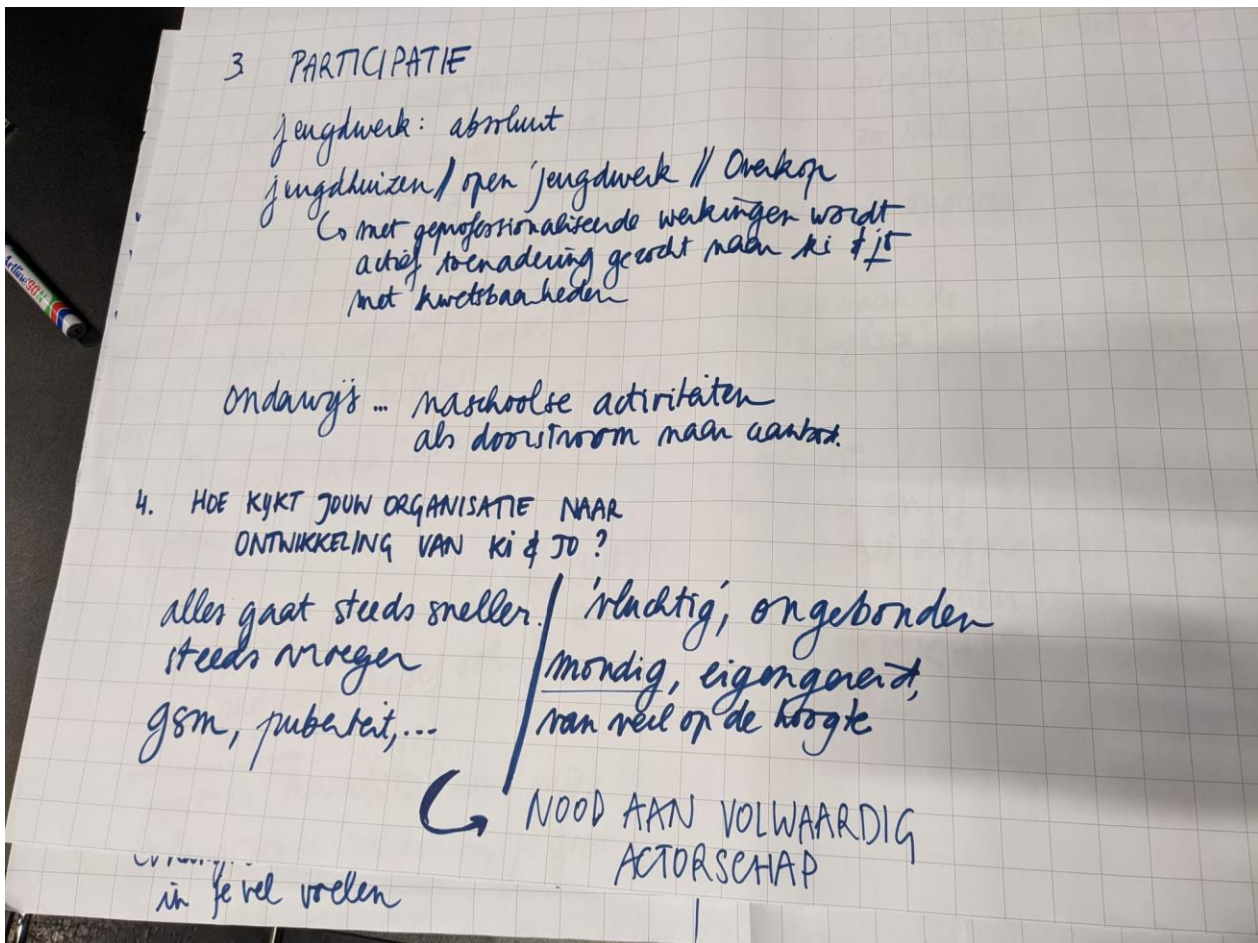 3. PARTICIPATIE
jeugdwerk: absoluut
jeugdhuizen // open jeugdwerk // Overkop
↳ met geprofessionaliseerde werkingen wordt
actief toenadering gezocht naar ki & jo
met kwetsbaarheden
onderwijs ... naschoolse activiteiten
als doorstroom naar aanbod.
4. HOE KIJKT JOUW ORGANISATIE NAAR
ONTWIKKELING VAN Ki & JO ?
alles gaat steeds sneller.
steeds vroeger
gsm, puberteit,...
'vluchtig', ongebonden
mondig, eigengereid,
van veel op de hoogte
NOOD AAN VOLWAARDIG
ACTORSCHAP
in je vel voelen
Artline 90